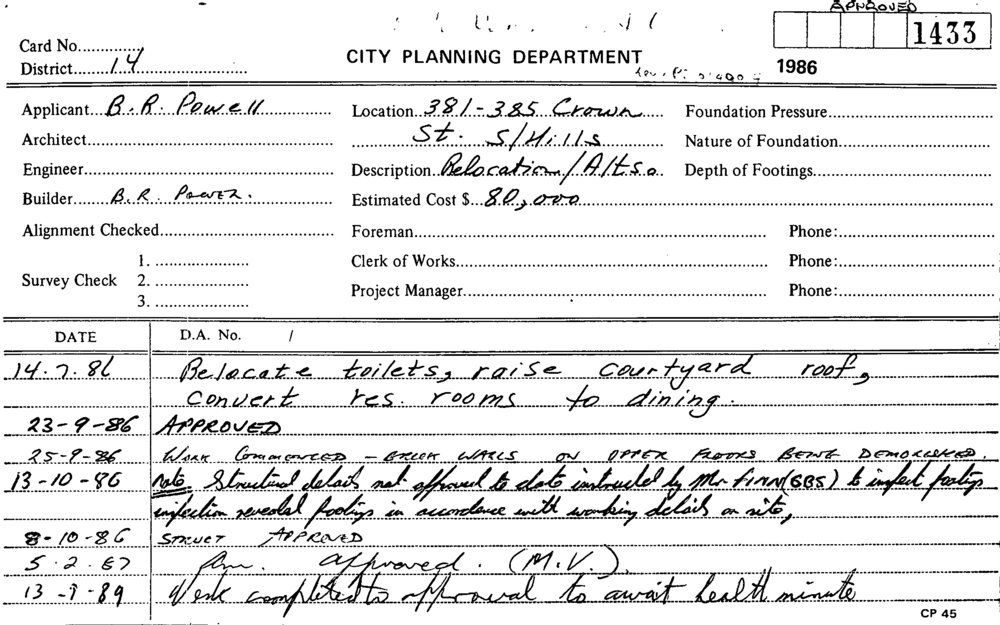 APPROVED
1433
Card No.
District 14
CITY PLANNING DEPARTMENT
1986
Applicant B. R. Powell
Location 381-385 Crown
Foundation Pressure
Architect
St. S/Hills
Nature of Foundation
Engineer
Description Relocation/Alts.
Depth of Footings
Builder B. R. POWER.
Estimated Cost $ 80,000
Alignment Checked
Foreman
Phone:
Survey Check
1.
2.
3.
Clerk of Works
Phone:
Project Manager
Phone:
DATE
D.A. No. /
14.7.86 Relocate toilets, raise courtyard roof,
convert res. rooms to dining.
23-9-86 APPROVED
25-9-86 WORK COMMENCED - BRICK WALLS ON UPPER FLOORS BEING DEMOLISHED.
13-10-86 Note. Structural details not approved to date instructed by Mr FINN (SBS) to inspect footings
inspection revealed footings in accordance with working details on site,
8-10-86 STRUCT APPROVED
5.2.87 Am. approved. (M.V.).
13-9-89 Work completed to approval to await health minute
CP 45